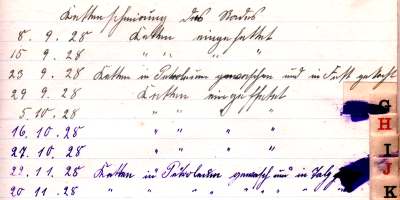 Kettenschmierung des Rades
8. 9. 28 Ketten eingefettet
15 9. 28 " " " "
23 9. 28 Ketten in Petroleum gewaschen und in Fett gekocht
29 9. 28 Ketten eingefettet
5. 10. 28 " " " "
16. 10. 28 " " " "
27. 10. 28 " " " "
22. 11. 28 Ketten in Petroleum gewasch und in Talg
20 11. 28 " " " " " " "
G
H
I
J
K